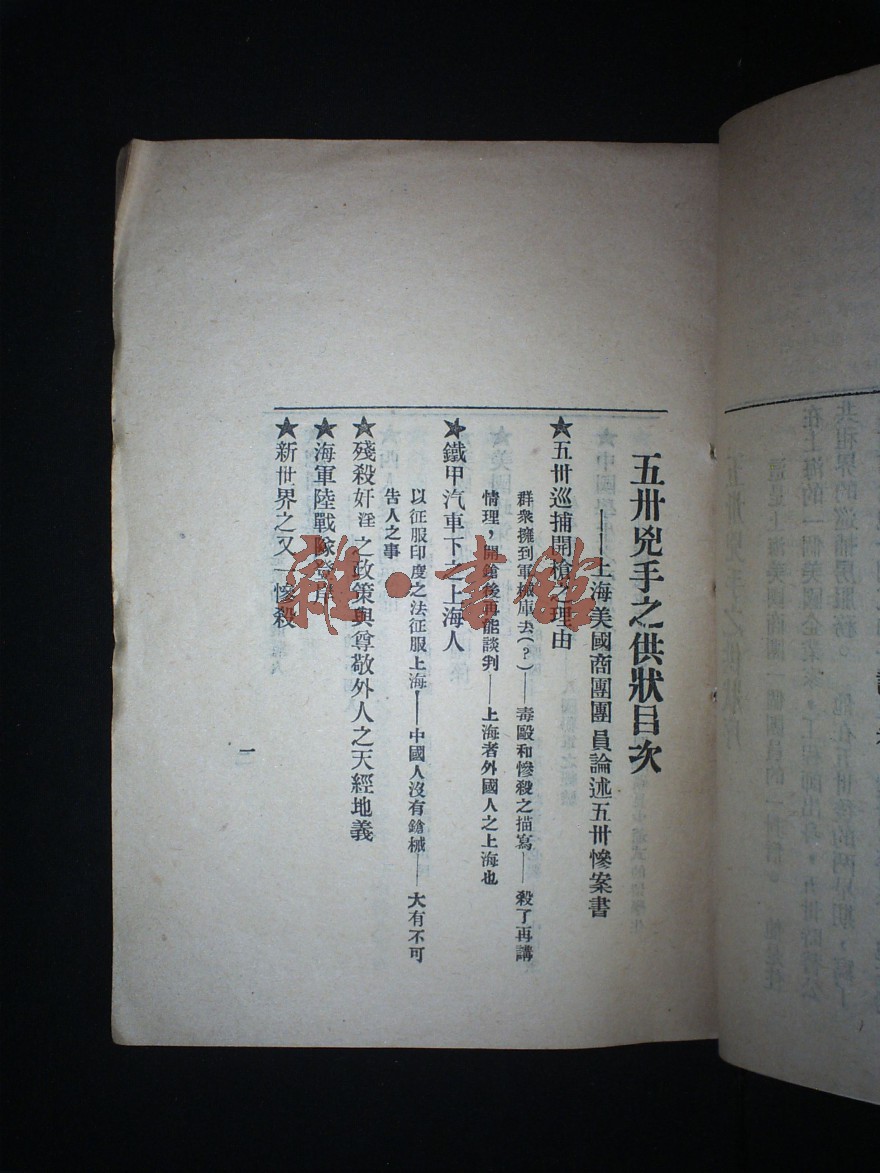 五卅兇手之供狀目次
——上海美國商團團員論述五卅慘案書
★五卅巡捕開槍之理由
群衆擁到軍械庫去(?)——毒毆和慘殺之描寫——殺了再講
情理,開鎗後再能談判——上海者外國人之上海也
★鐵甲汽車下之上海人
以征服印度之法征服上海——中國人沒有鎗械——大有不可
告人之事
★殘殺奸淫之政策與尊敬外人之天經地義
★海軍陸戰隊登岸
★新世界之又一慘殺
一
雜·書館